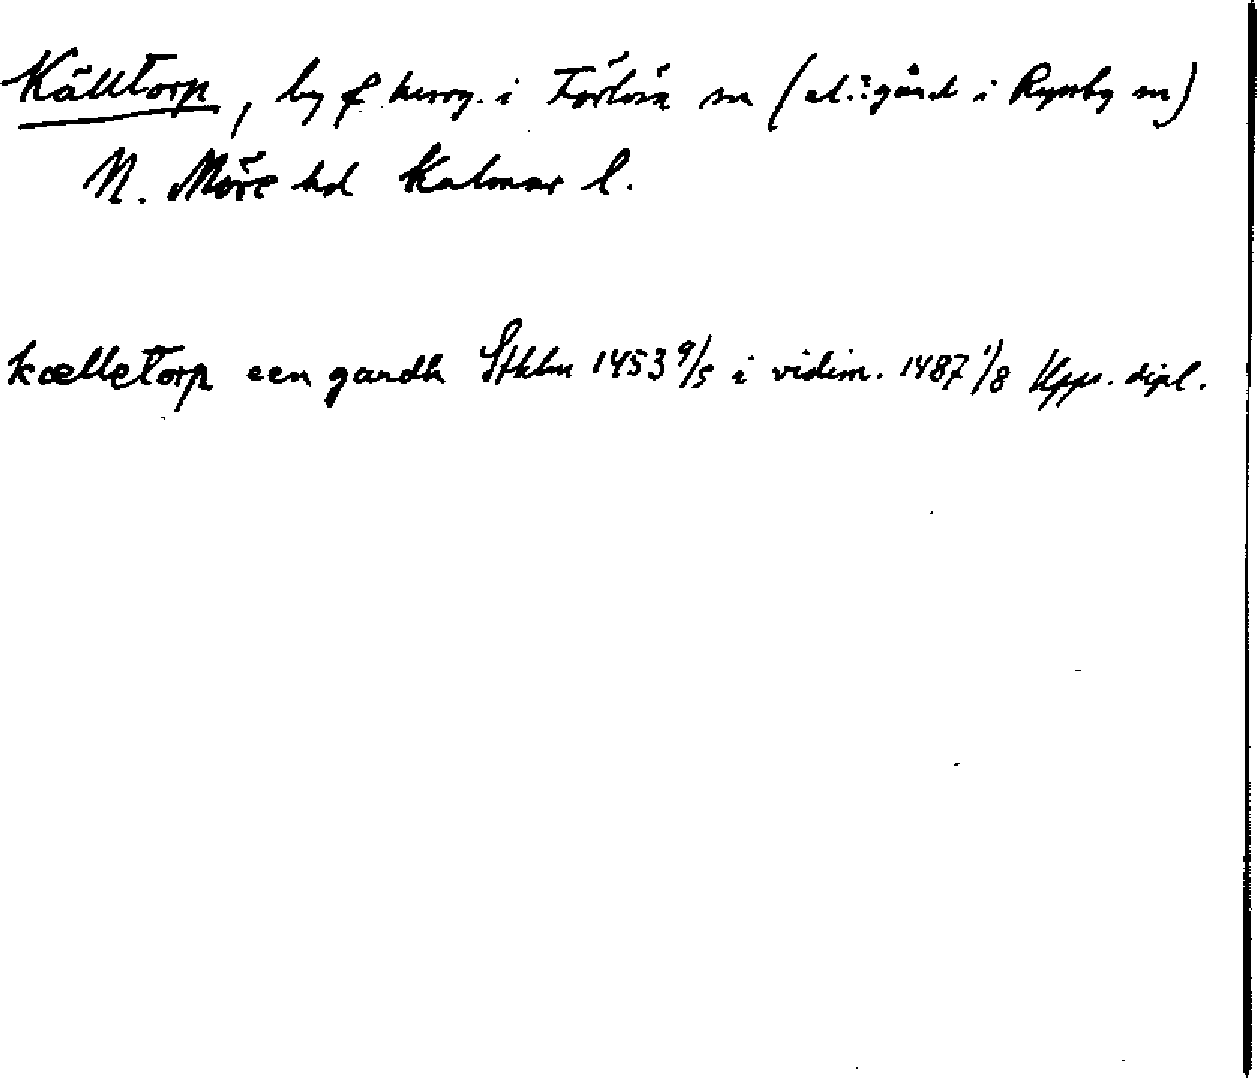 Källtorp, by f. herrg. i Förlösa sn (el. : gård i Ryssby sn)
N. Möre hd Kalmar l.
kælletorp een gardh Sthlm 1453 9/5 i vidim. 1487 1/8 Upps. dipl.